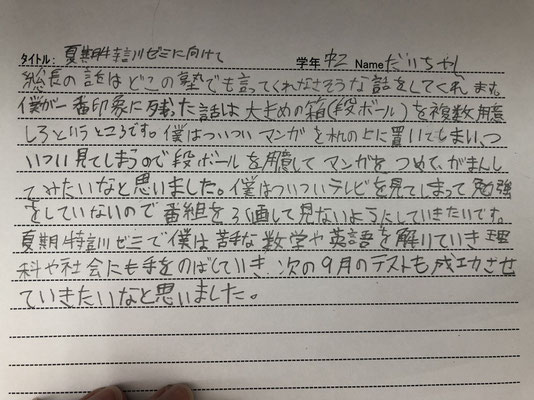 タイトル: 夏期特訓ゼミに向けて 学年 中2 Name だいちゃん
総長の話はどこの塾でも言ってくれなさそうな話をしてくれます。
僕が一番印象に残った話は大きめの箱(段ボール)を複数用意
しろというところです。僕はついついマンガを机の上に置いてしまい、つ
いつい見てしまうので段ボールを用意してマンガをつめて、がまんし
てみたいなと思いました。僕はついついテレビを見てしまって勉強
をしていないので番組を3個して見ないようにしていきたいです。
夏期特訓ゼミで僕は苦手な数学や英語を解いていき理
科や社会にも手をのばしていき、次の9月のテストも成功させ
ていきたいなと思いました。